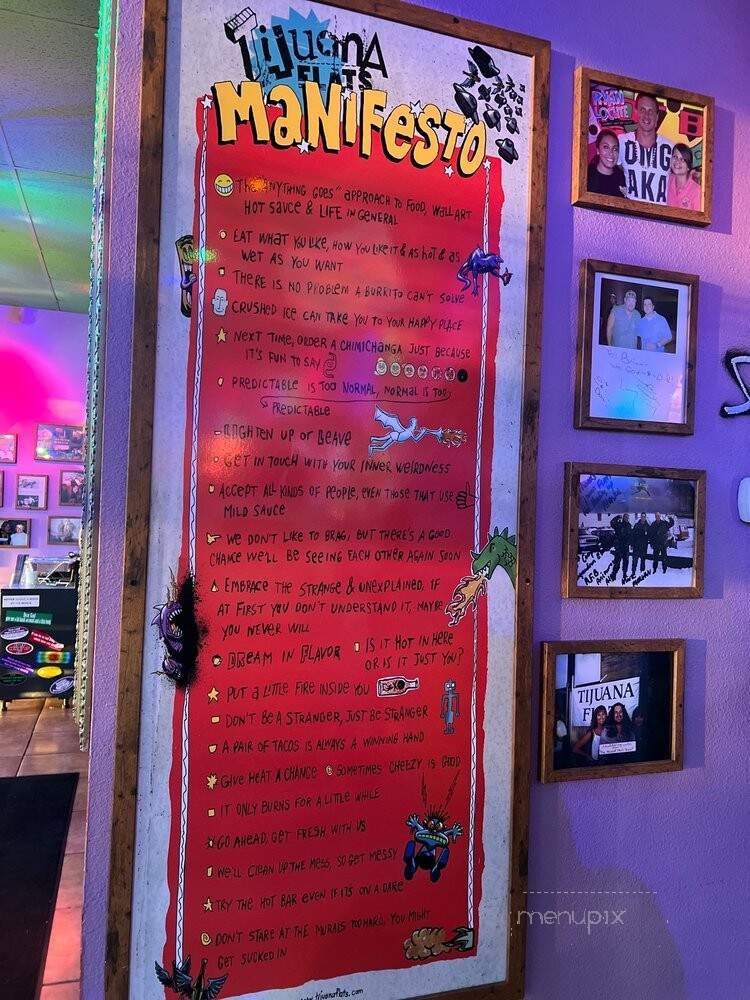 Tijuana
FLATS
MANIFESTO
The "ANYTHING GOES" APPROACH TO FOOD, WALL ART
HOT SAUCE & LIFE IN GENERAL
EAT WHAT YOU LIKE, HOW YOU LIKE IT & AS HOT & AS
WET AS YOU WANT
THERE IS NO PROBLEM A BURRITO CAN'T SOLVE
CRUSHED ICE CAN TAKE YOU TO YOUR HAPPY PLACE
NEXT TIME, ORDER A CHIMICHANGA JUST BECAUSE
IT'S FUN TO SAY
PREDICTABLE IS TOO NORMAL, NORMAL IS TOO
PREDICTABLE
LIGHTEN UP OR LEAVE
GET IN TOUCH WITH YOUR INNER WEIRDNESS
ACCEPT ALL KINDS OF PEOPLE, EVEN THOSE THAT USE
MILD SAUCE
WE DON'T LIKE TO BRAG, BUT THERE'S A GOOD
CHANCE WE'LL BE SEEING EACH OTHER AGAIN SOON
EMBRACE THE STRANGE & UNEXPLAINED, IF
AT FIRST YOU DON'T UNDERSTAND IT, MAYBE
YOU NEVER WILL
DREAM IN FLAVOR
IS IT HOT IN HERE
OR IS IT JUST YOU?
PUT A LITTLE FIRE INSIDE YOU
DON'T BE A STRANGER, JUST BE STRANGER
A PAIR OF TACOS IS ALWAYS A WINNING HAND
GIVE HEAT A CHANCE
SOMETIMES CHEEZY IS GOOD
IT ONLY BURNS FOR A LITTLE WHILE
GO AHEAD, GET FRESH WITH US
WE'LL CLEAN UP THE MESS, SO GET MESSY
TRY THE HOT BAR EVEN IF IT'S ON A DARE
DON'T STARE AT THE MURALS TOO HARD, YOU MIGHT
GET SUCKED IN
tijuanaflats.com
RYAN
LOCHTE
OMG
AKA
TIJUANA
menupix